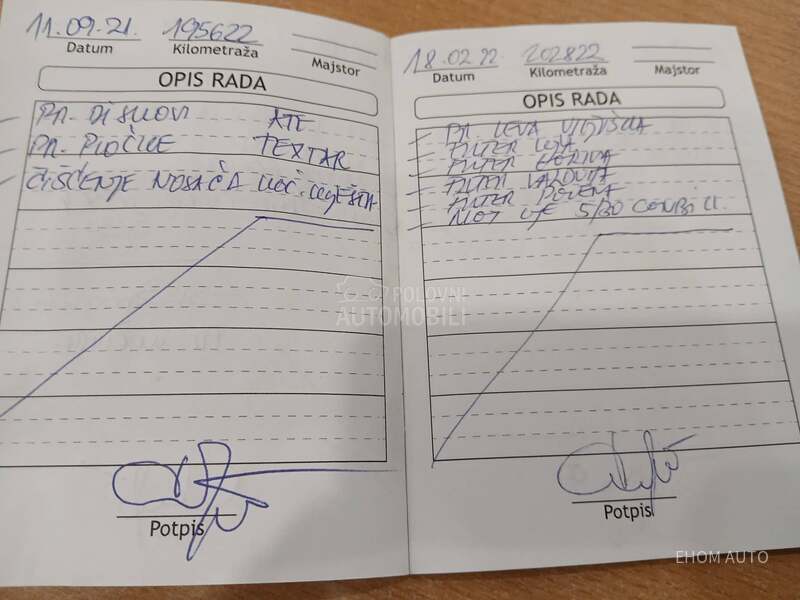 11.09.21. 195622
Datum Kilometraža Majstor
OPIS RADA
PR. DISKOVI ATE
PR. PLOČICE TEXTAR
ČIŠĆENJE NOSAČA KOČ.
Potpis
18.02.22 202822
Datum Kilometraža Majstor
OPIS RADA
PR. LEVA
FILTER ULJA
FILTER GORIVA
FILTER VAZDUHA
FILTER POLENA
MOT ULJE 5/30
Potpis
POLOVNI
AUTOMOBILI
EHOM AUTO